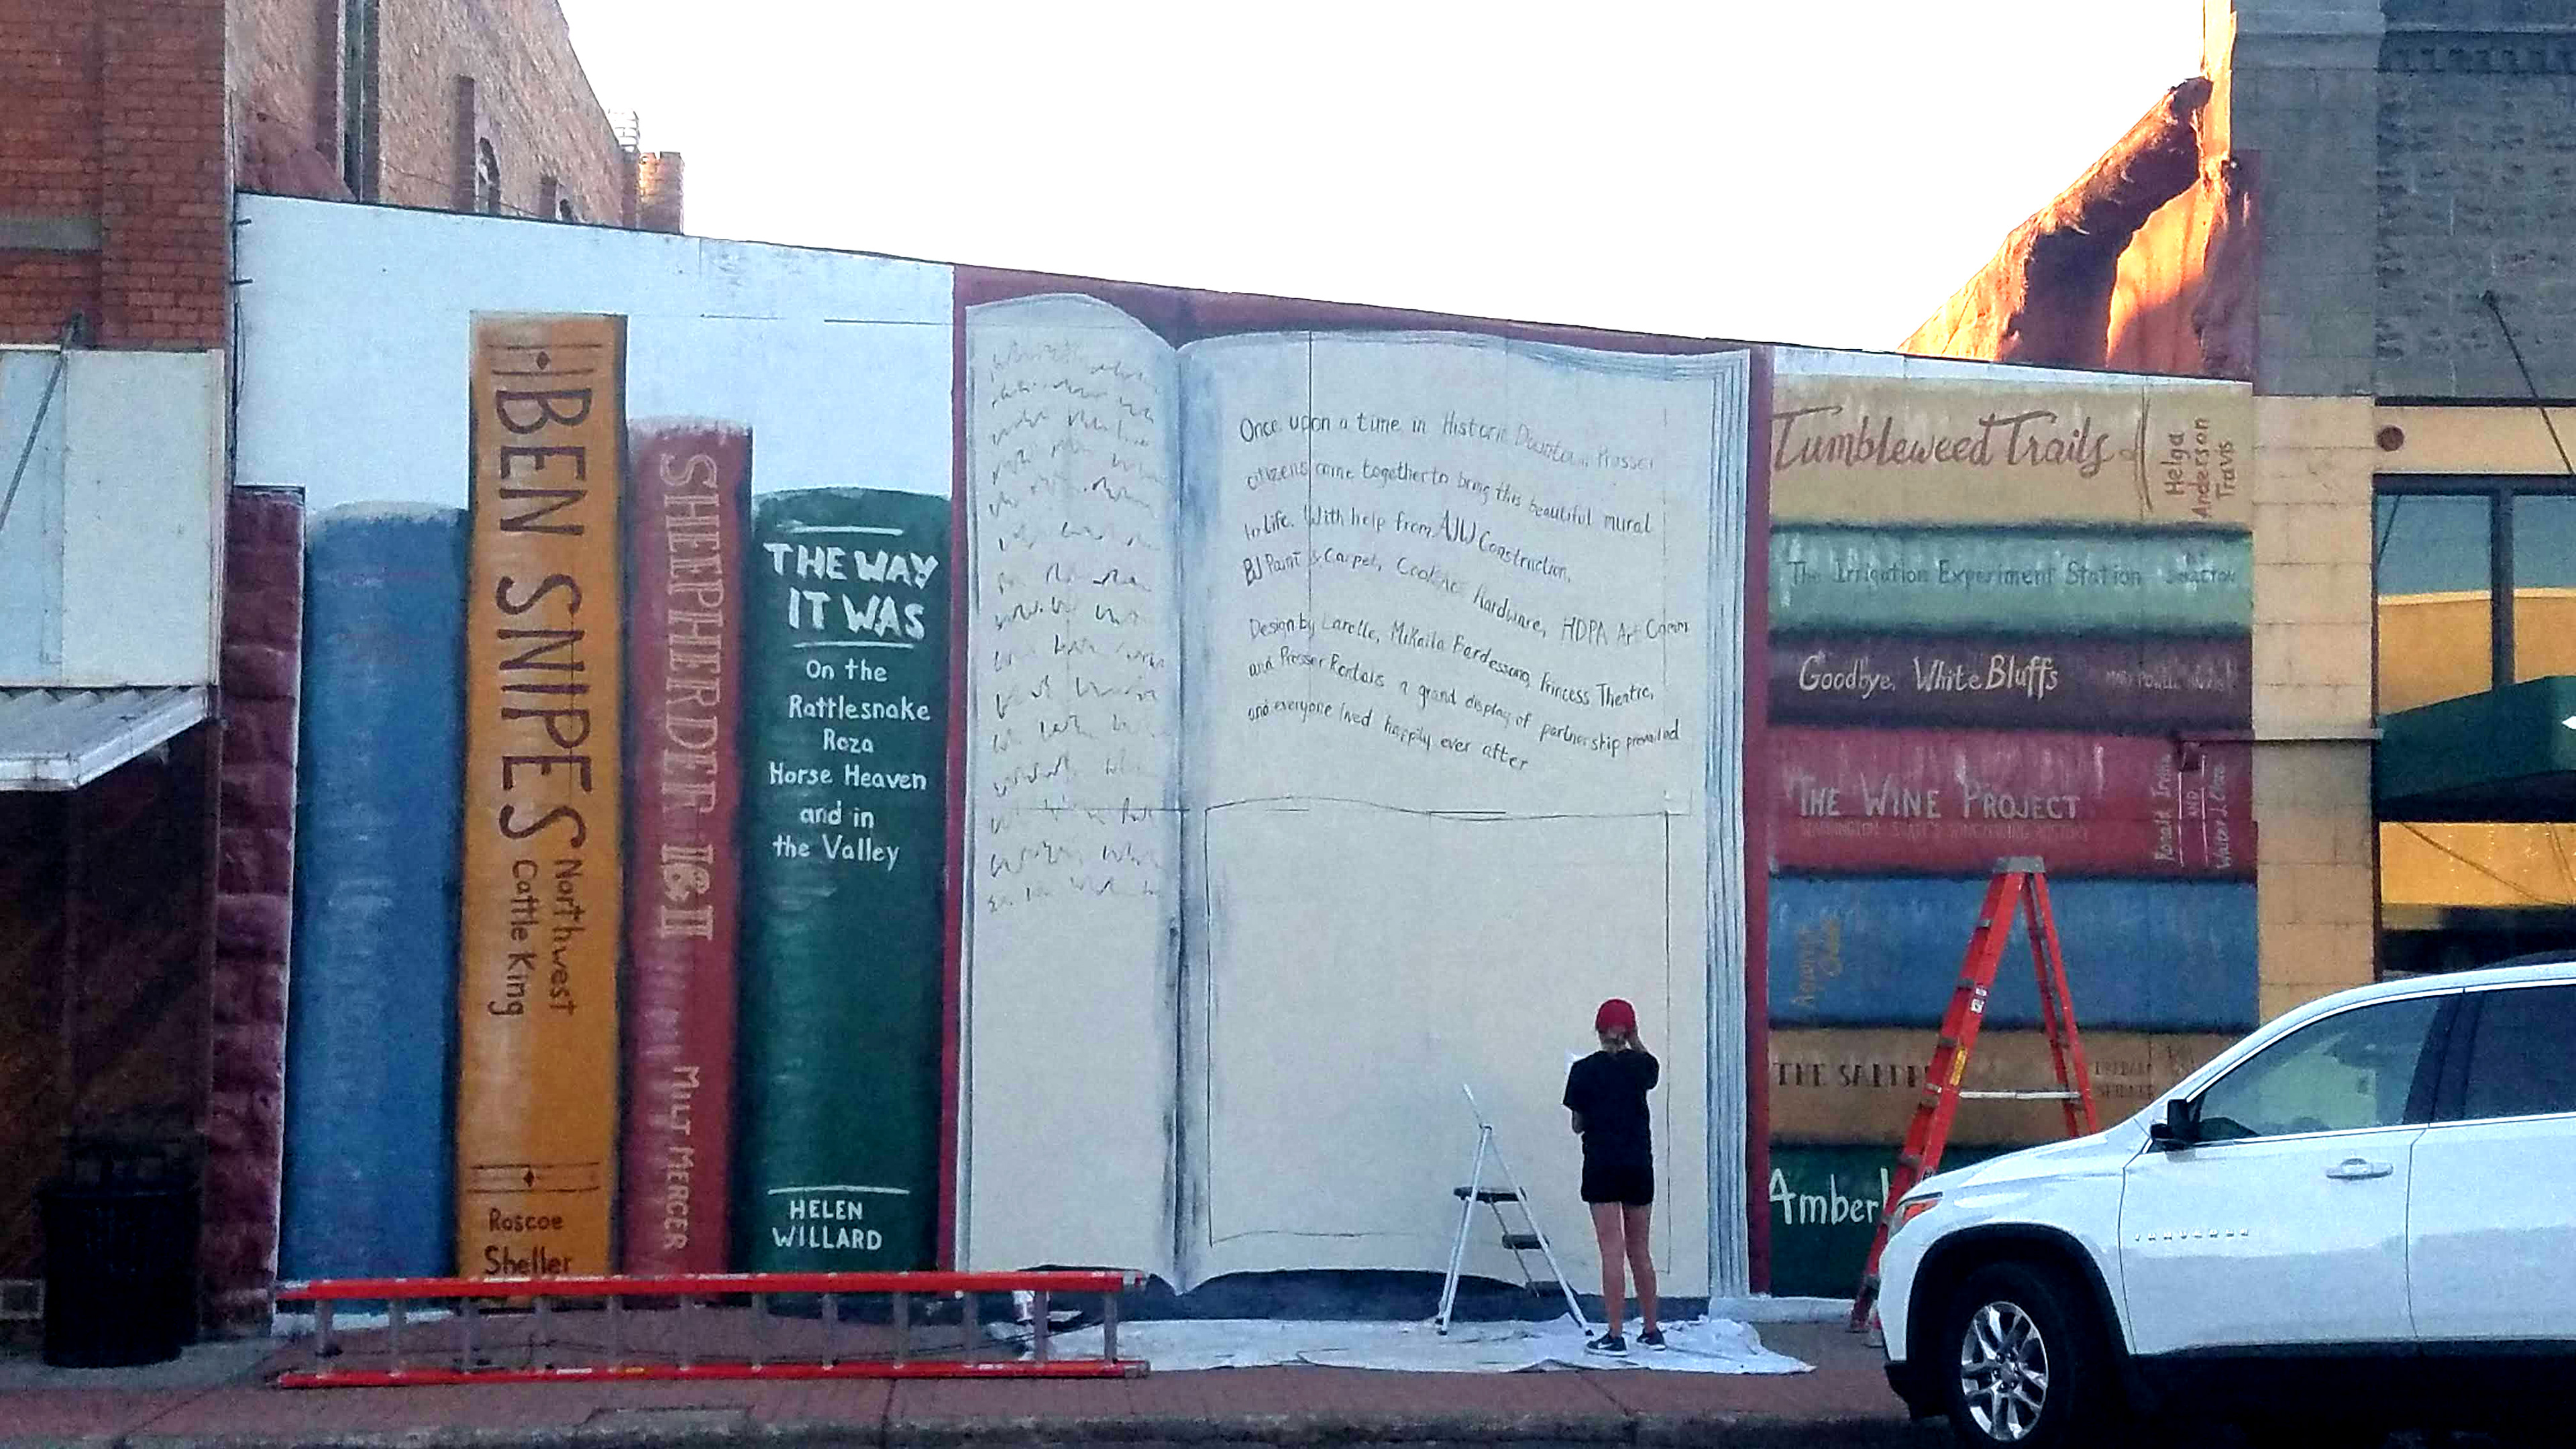 BEN SNIPES
Northwest
Cattle King
Roscoe
Sheller
SHEEPHERDER I & II
MILT MERCER
THE WAY
IT WAS
On the
Rattlesnake
Roza
Horse Heaven
and in
the Valley
HELEN
WILLARD
Once upon a time in Historic Downtown Prosser
citizens came together to bring this beautiful mural
to life. With help from AJW Construction,
BJ Paint & Carpet, Hardware, HDPA Art Comm
Design by Larelle, Mikaila Bardessono, Princess Theatre,
and Prosser Rentals a grand display of partnership prevailed
and everyone lived happily ever after
Tumbleweed Trails
Helga
Anderson
Travis
The Irrigation Experiment Station
Goodbye, White Bluffs
THE WINE PROJECT
WASHINGTON STATE'S WINEMAKING HISTORY
Ronald Irvine
AND
Walter J. Clore
THE
Amber